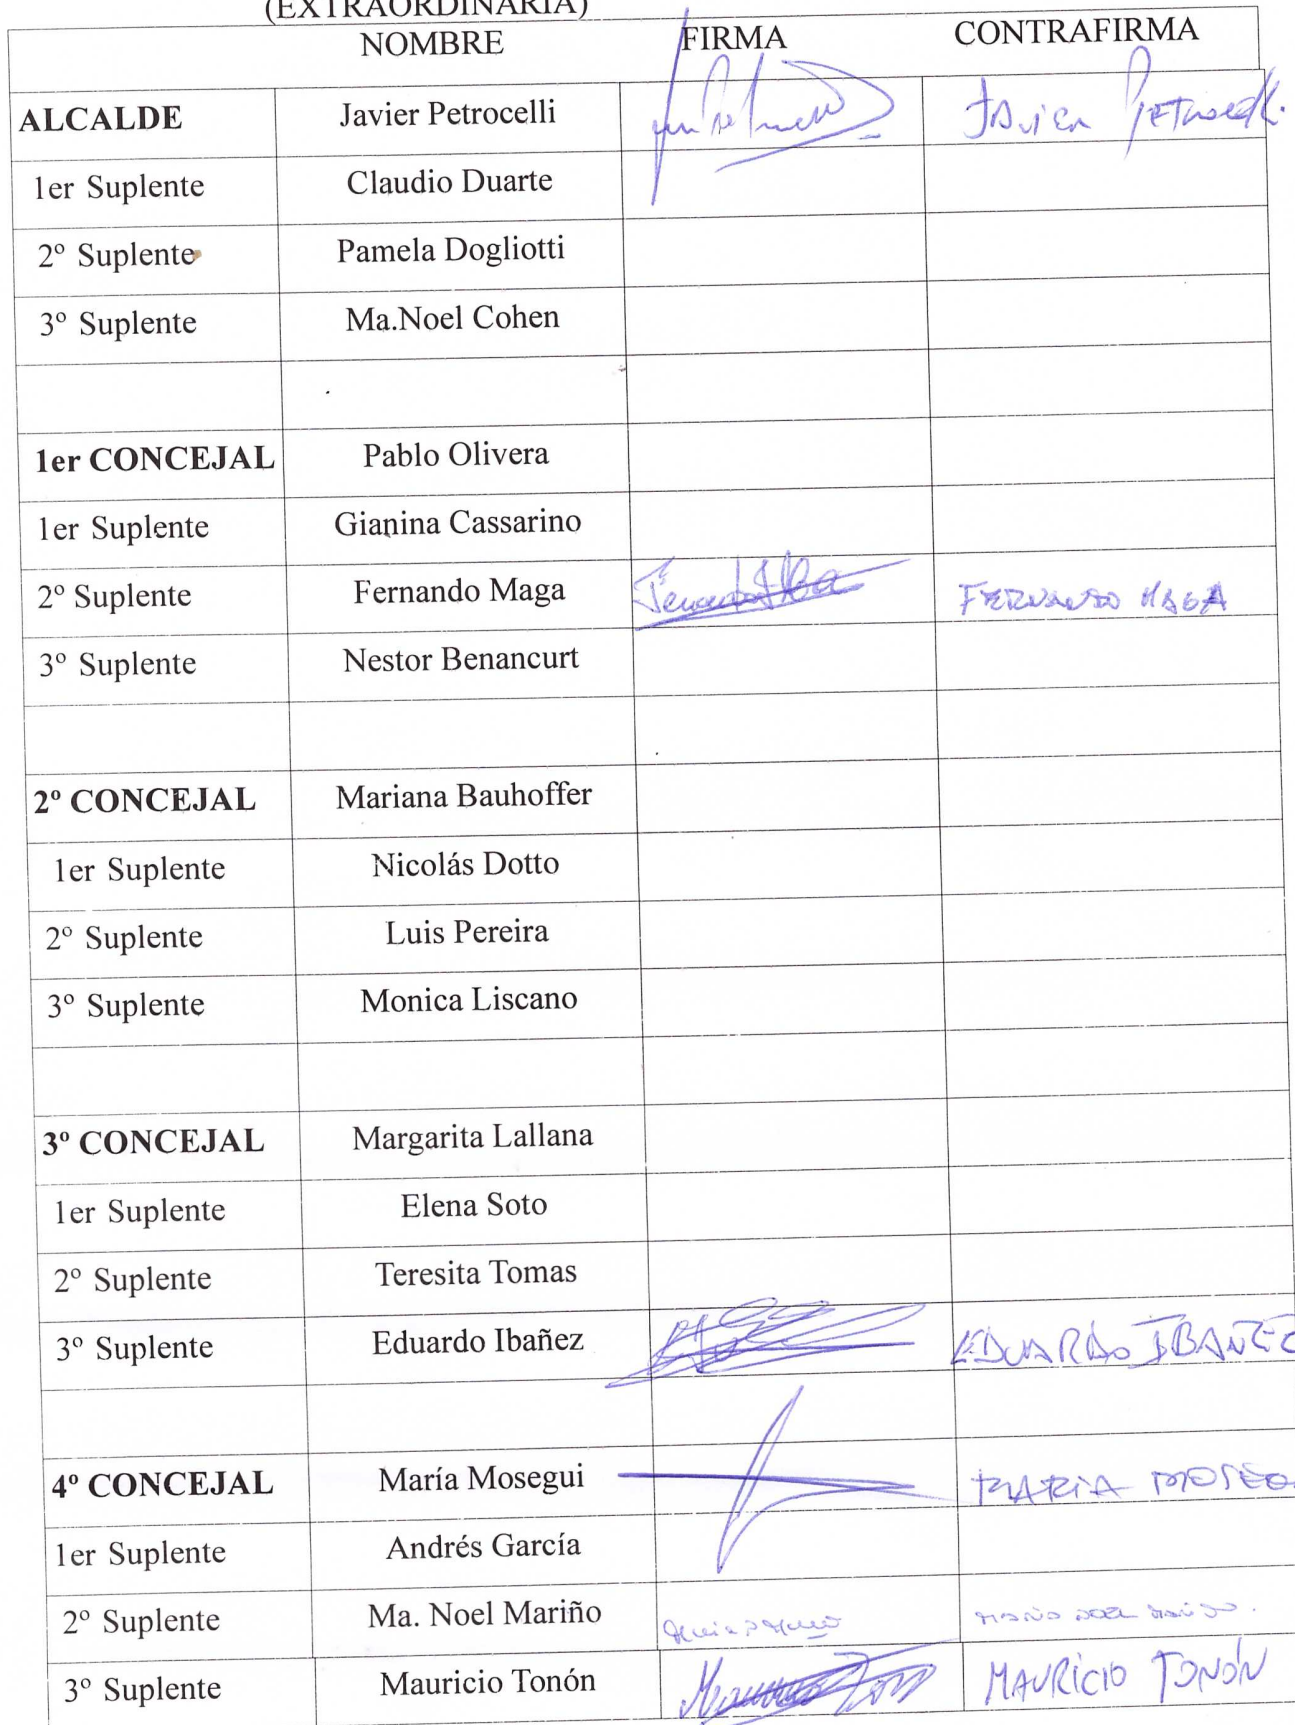 (EXTRAORDINARIA)
NOMBRE FIRMA CONTRAFIRMA
ALCALDE Javier Petrocelli Javier Petrocelli
1er Suplente Claudio Duarte
2º Suplente Pamela Dogliotti
3º Suplente Ma.Noel Cohen
1er CONCEJAL Pablo Olivera
1er Suplente Gianina Cassarino
2º Suplente Fernando Maga FERNANDO MAGA
3º Suplente Nestor Benancurt
2º CONCEJAL Mariana Bauhoffer
1er Suplente Nicolás Dotto
2º Suplente Luis Pereira
3º Suplente Monica Liscano
3º CONCEJAL Margarita Lallana
1er Suplente Elena Soto
2º Suplente Teresita Tomas
3º Suplente Eduardo Ibañez EDUARDO IBAÑEZ
4º CONCEJAL María Mosegui MARIA
1er Suplente Andrés García
2º Suplente Ma. Noel Mariño
3º Suplente Mauricio Tonón MAURICIO TONÓN